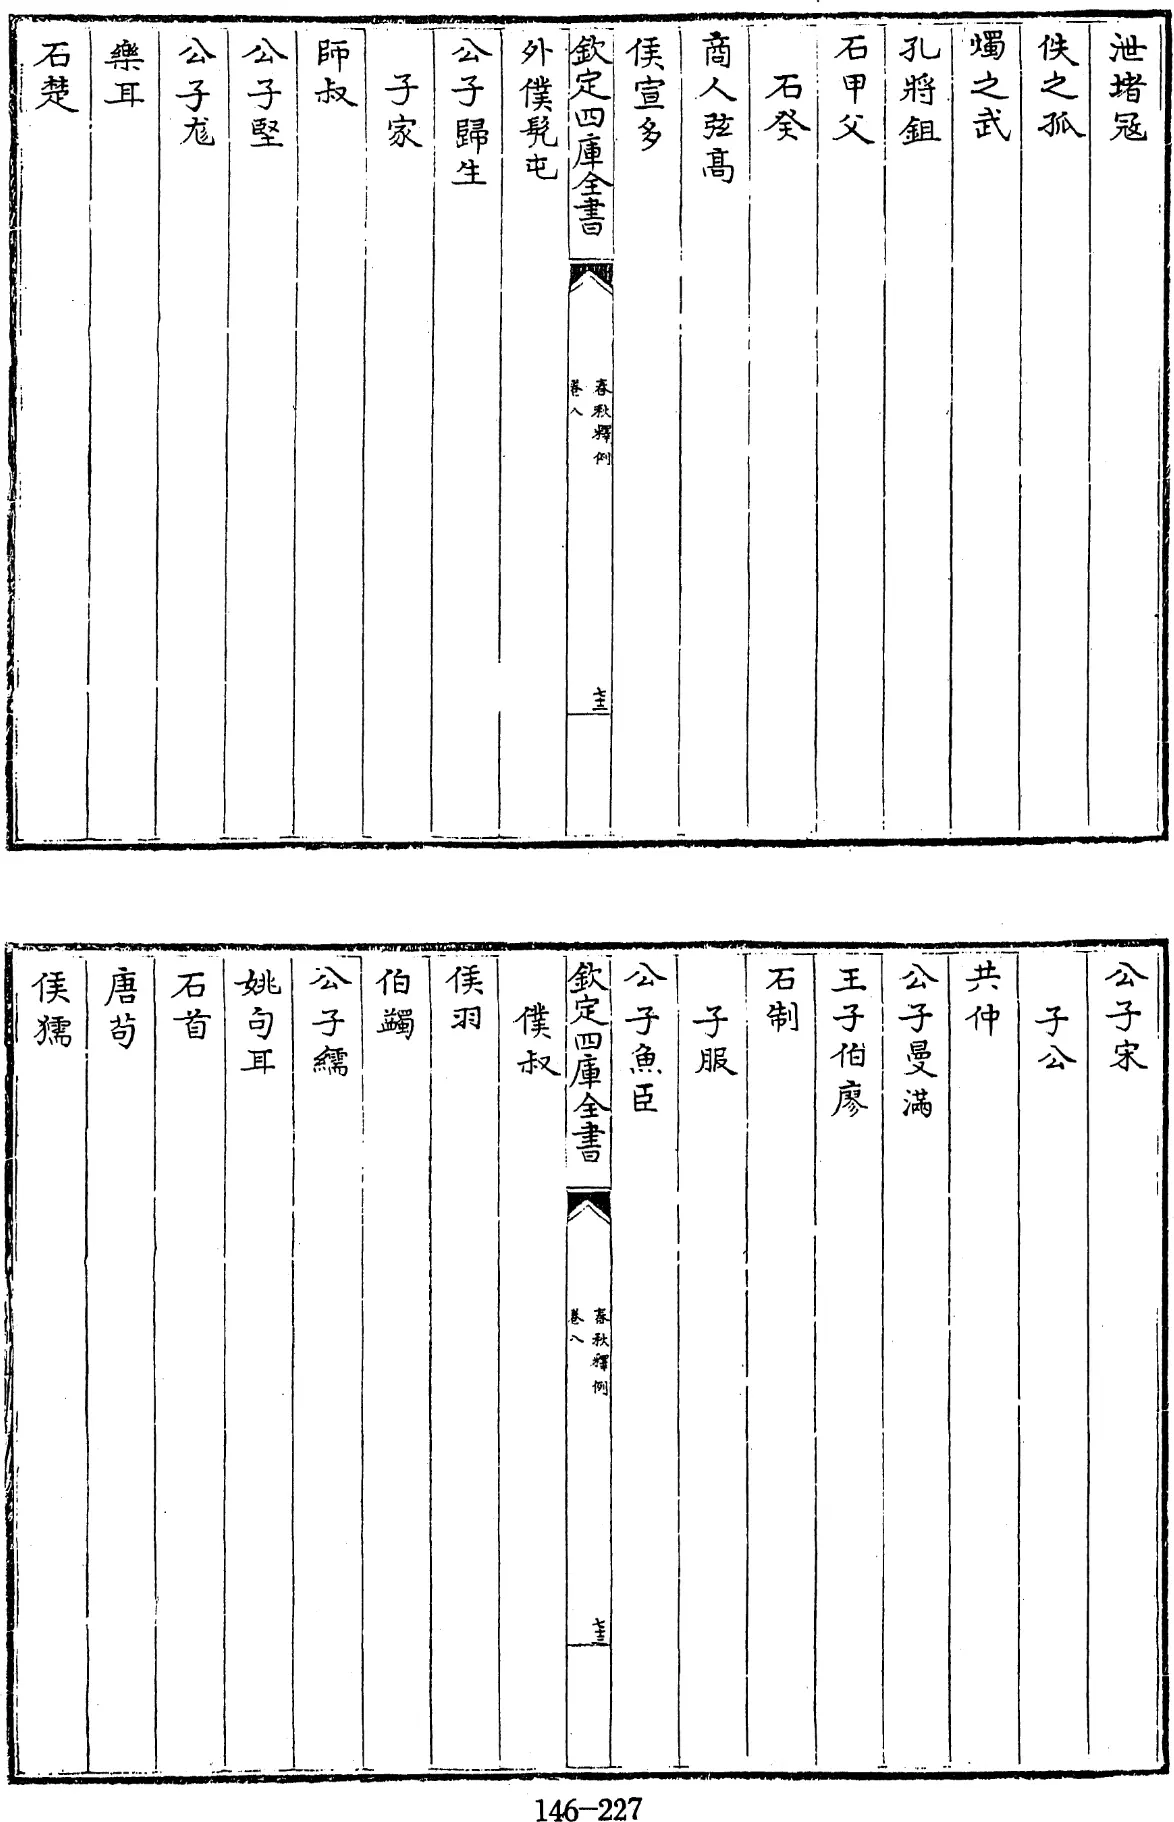 泄堵冦
佚之孤
燭之武
孔將鉏
石甲父
石癸
商人弦髙
侯宣多
欽定四庫全書
春秋釋例
卷八
七十二
外僕髡屯
公子歸生
子家
師叔
公子堅
公子尨
樂耳
石楚
公子宋
子公
共仲
公子曼滿
王子伯廖
石制
子服
公子魚臣
欽定四庫全書
春秋釋例
卷八
七十三
僕叔
侯羽
伯蠲
公子繻
姚句耳
石首
唐苟
侯獳
146-227